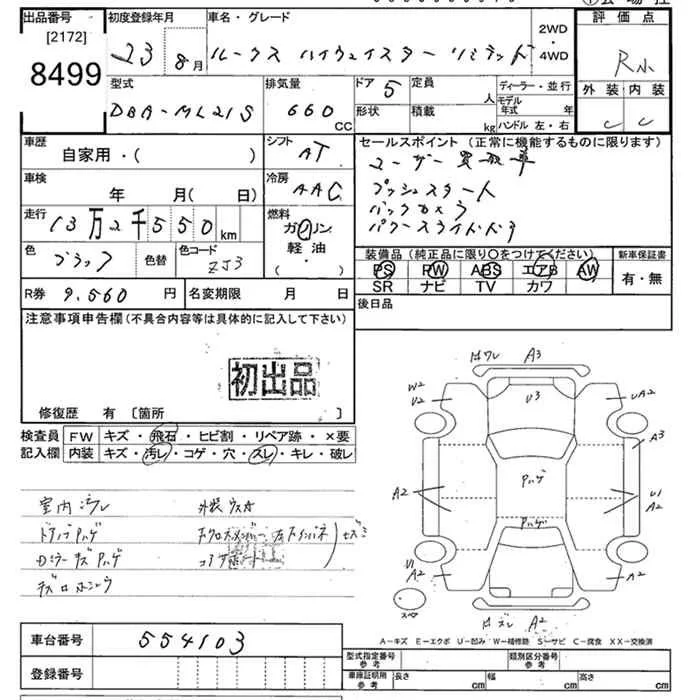 出品番号 初度登録年月 車名・グレード 評価点
[2172]
8499
23 8月 ルークス ハイウェイスター リミテッド 2WD・4WD R小
外装 内装
C C
型式 排気量 ドア 5 定員 人 ディーラー・並行
DBA-ML21S 660 CC 形状 積載 kg モデル年式 年
ハンドル 左・右
車歴 シフト セールスポイント (正常に機能するものに限ります)
自家用・( ) AT ユーザー買取車
車検 冷房 プッシュスタート
年 月(日) AAC バックカメラ
走行 13万2千550km 燃料 パワースライドドア
ガソリン
色 ブラック 色替 色コード ZJ3 軽・油
・( )
装備品 (純正品に限り○をつけてください) 新車保証書
PS PW ABS エアB AW 有・無
SR ナビ TV カワ
R券 9,560 円 名変期限 月 日
後日品
注意事項申告欄 (不具合内容等は具体的に記入して下さい)
初出品
修復歴 有 〔箇所 〕
検査員 FW キズ・飛石・ヒビ割・リペア跡・×要
記入欄 内装 キズ・汚レ・コゲ・穴・スレ・キレ・破レ
室内汚レ
ハゲ
Dミラーキズ ハゲ
コアサポート
A3
W2
U2
U3
UA2
A3
A2
ハゲ
U1
A2
ハゲ
U1
A2
A2
スペア
A2
A-キズ E-エクボ U-凹み W-補修跡 S-サビ C-腐食 XX-交換済
車台番号 554103
登録番号
型式指定番号 参考 類別区分番号 参考
車庫証明用 参考 長さ cm 幅 cm 高さ cm